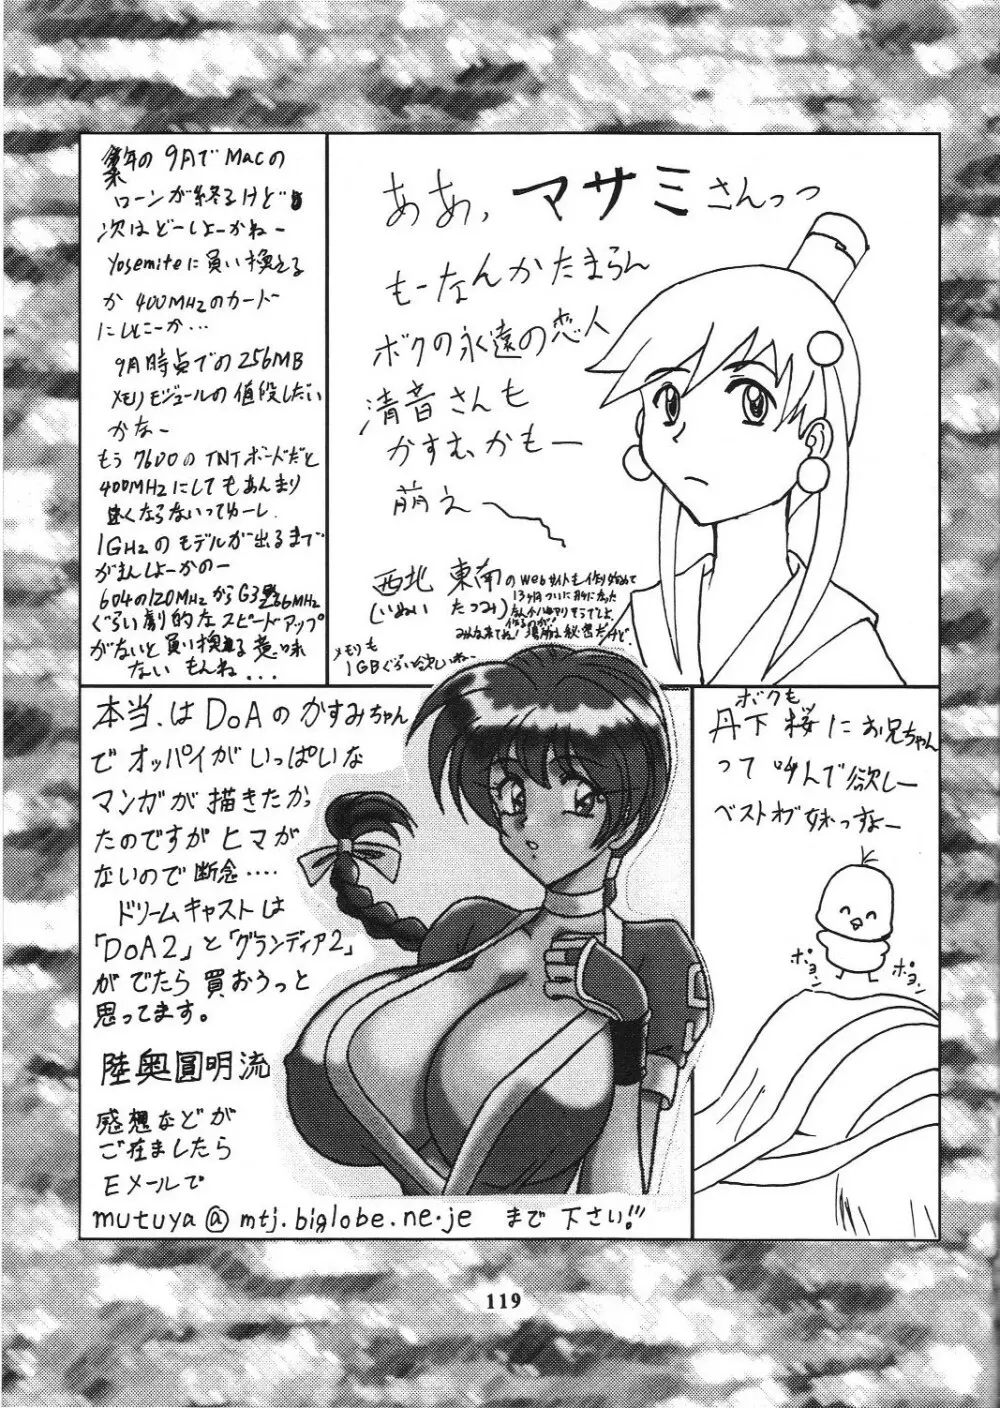 来年の9月でMacの
ローンが終るけど
次はどーしよーかねー
Yosemiteに買い換える
か 400MHzのカード
にしとこーか…
9月時点での256MB
メモリモジュールの値段しだい
かなー
もう7600のTNTボードだと
400MHzにしてもあんまり
速くならないってゆーし
1GHzのモデルが出るまで
がまんしよーかのー
604の120MHzからG3 266MHz
ぐらい劇的なスピードアップ
がないと買い換える意味
ないもんね...
ああ、マサミさんっっ
もーなんかたまらん
ボクの永遠の恋人
清音さんも
かすむかもー
萌え〜
西北 東南の Webサイトも作り始めて
(いぬい たつみ) 13ヶ月ついに形になった
みんな来てね! 場所は秘密だけど
メモリも
1GBぐらい欲しいねー
本当はDoAのかすみちゃん
でオッパイがいっぱいな
マンガが描きたかっ
たのですがヒマが
ないので断念‥‥
ドリームキャストは
「DoA2」と「グランディア2」
がでたら買おうっと
思ってます。
陸奥圓明流
感想などが
ご在ましたら
Eメールで
mutuya@mtj.biglobe.ne.je まで下さい!!
ボクも
丹下桜にお兄ちゃん
って呼んで欲しー
ベストオブ妹っすよー
ポヨン
ポヨン
119